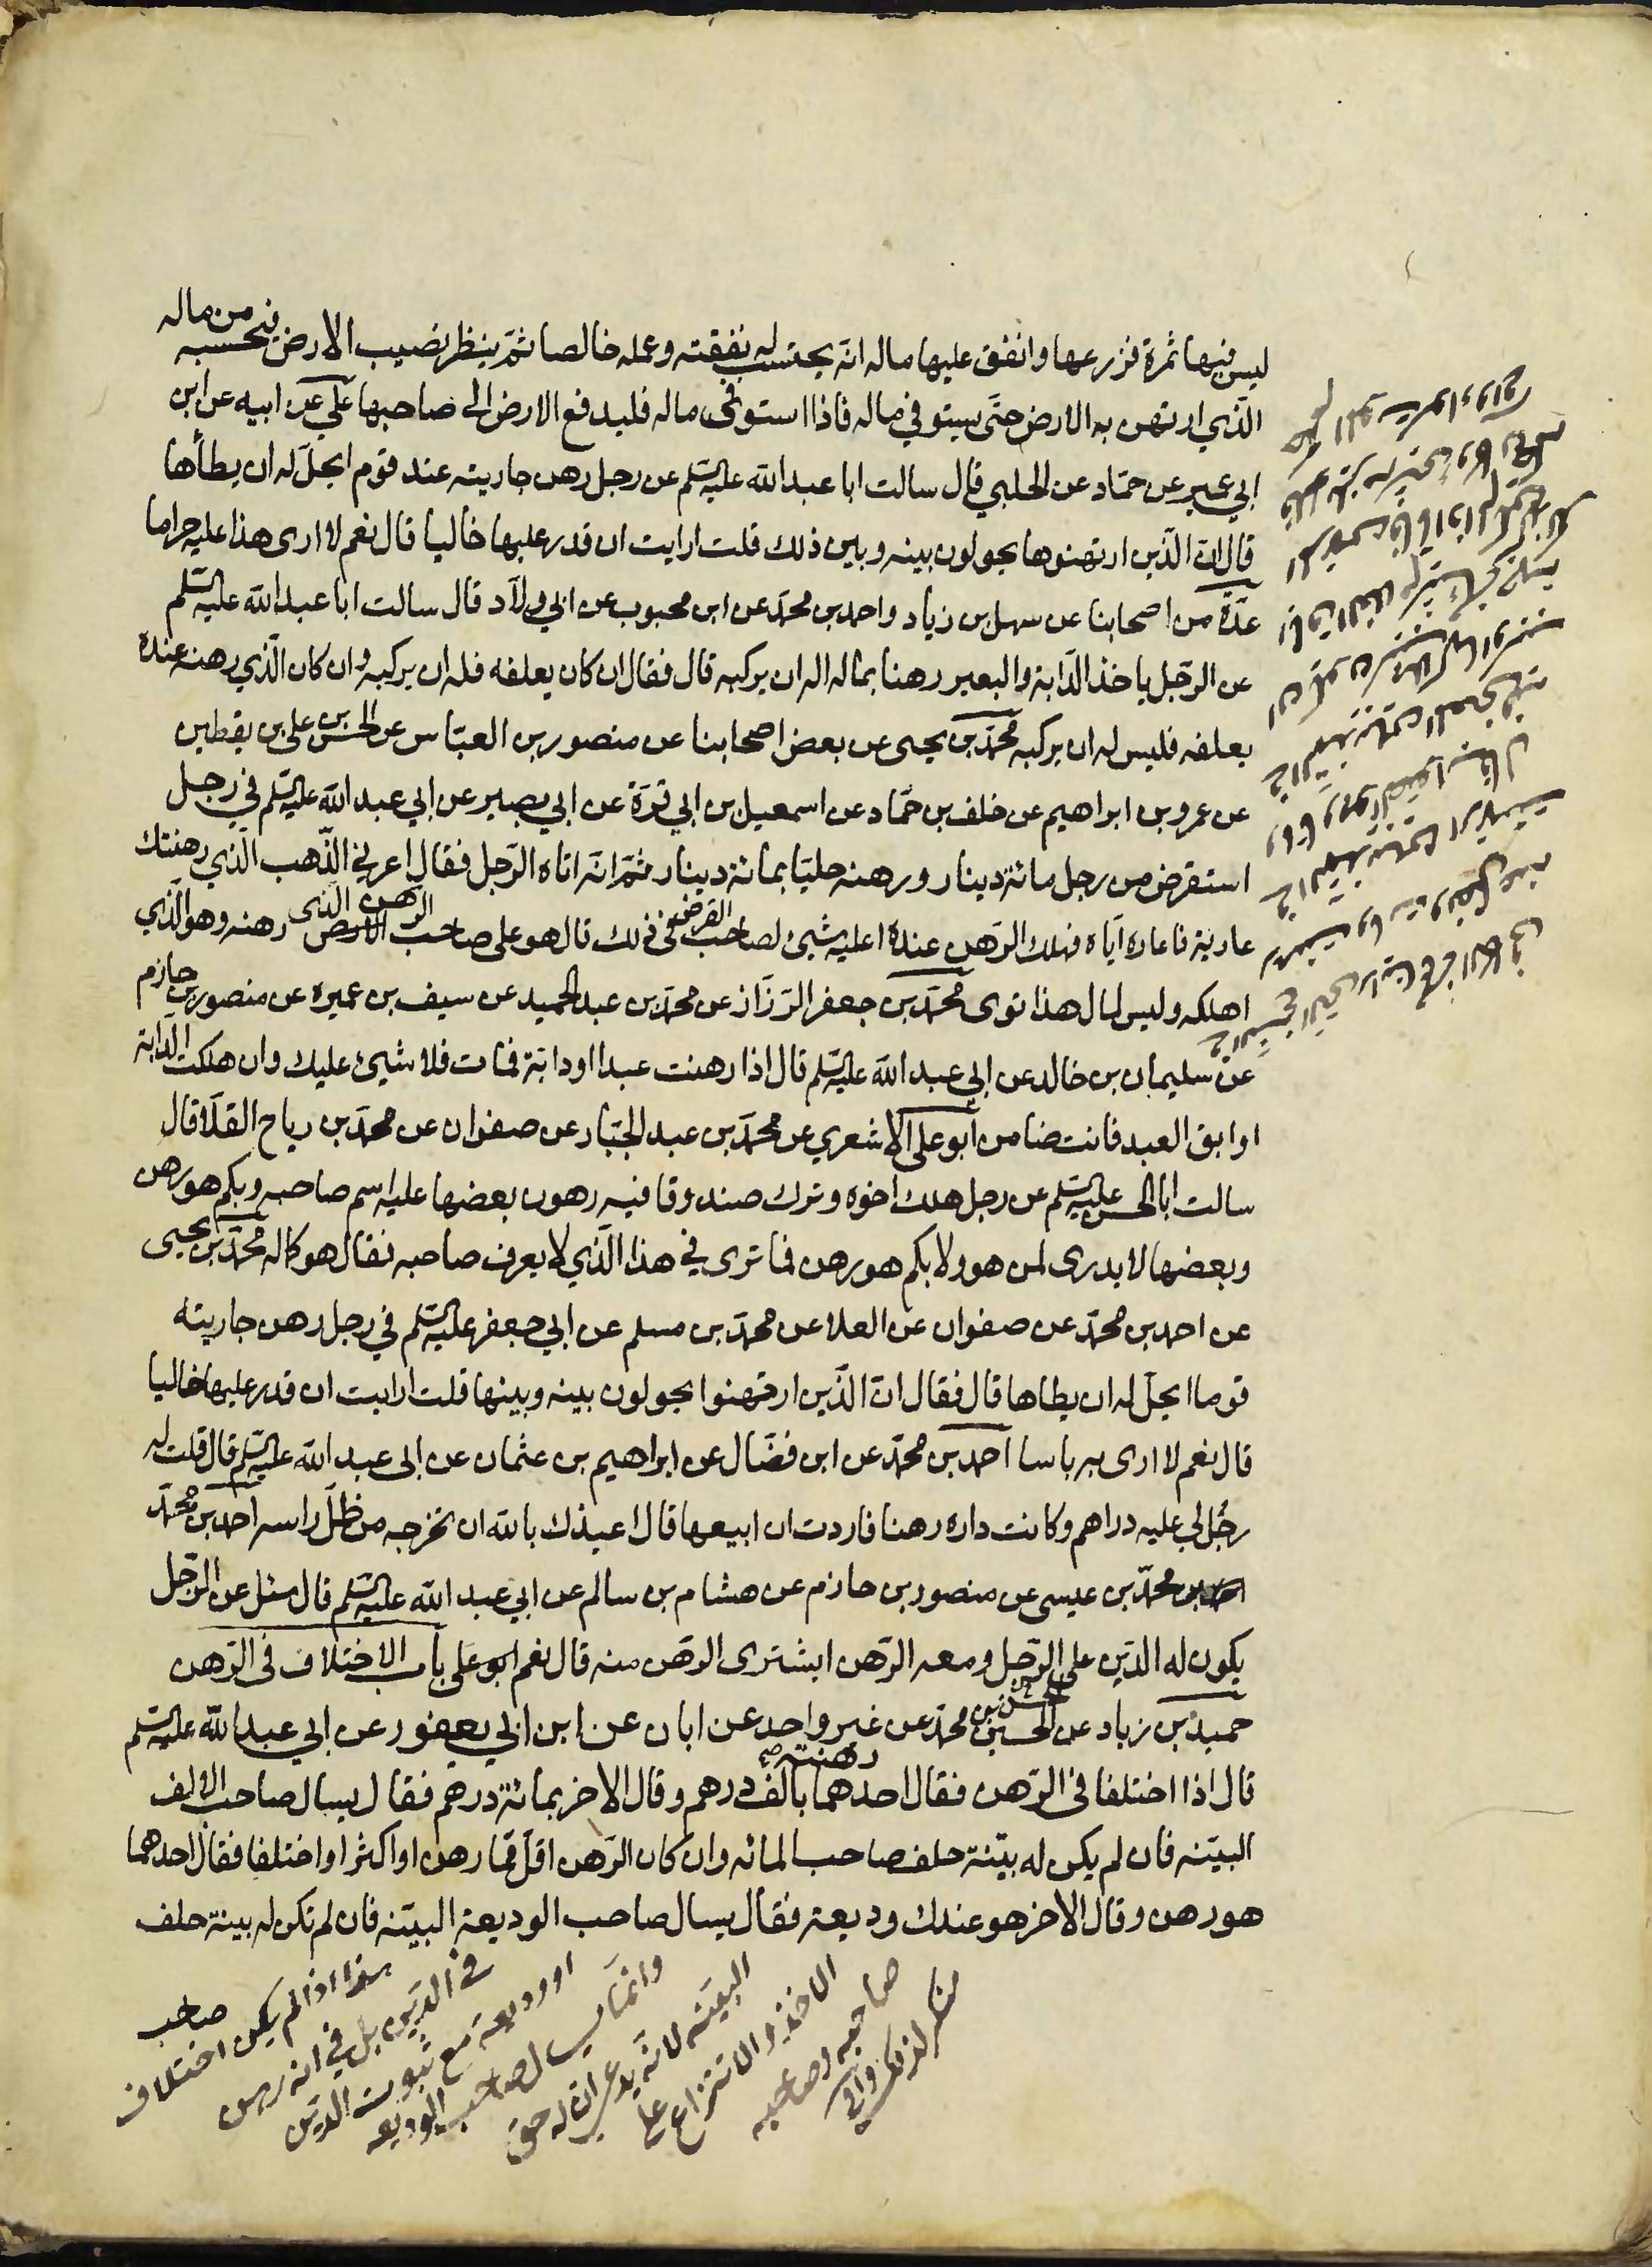 ليس فيها ثمرة فزرعها وانفق عليها ماله انه يحتسب له نفقته وعمله خالصا ثم ينظر نصيب الارض فيحسبه من ماله
الذي ارتهن به الارض حتى يستوفي ماله فاذا استوفى ماله فليدفع الارض الى صاحبها علي عن ابيه عن ابن
ابي عمير عن حماد عن الحلبي قال سالت ابا عبد الله عليه السلم عن رجل رهن جاريته عند قوم ايحل له ان يطأها
قال ان الذين ارتهنوها يحولون بينه وبين ذلك قلت ارايت ان قدر عليها خاليا قال نعم لا ارى هذا عليه حراما
عدة من اصحابنا عن سهل بن زياد واحمد بن محمد عن ابن محبوب عن ابي ولاد قال سالت ابا عبد الله عليه السلم
عن الرجل ياخذ الدابة والبعير رهنا بماله اله ان يركبه قال فقال ان كان يعلفه فله ان يركبه وان كان الذي رهنه عنده
يعلفه فليس له ان يركبه محمد بن يحيى عن بعض اصحابنا عن منصور بن العباس عن الحسن بن علي بن يقطين
عن عمرو بن ابراهيم عن خلف بن حماد عن اسمعيل بن ابي قرة عن ابي بصير عن ابي عبد الله عليه السلم في رجل
استقرض من رجل مائة دينار ورهنه حليا بمائة دينار ثم انه اتاه الرجل فقال اعرني الذهب الذي رهنتك
عارية فاعاره اياه فهلك الرهن عنده اعليه شيئ لصاحب القرض في ذلك قال هو على صاحب الرهن الذى رهنه وهو الذي
اهلكه وليس لمال هذا توى محمد بن جعفر الرزاز عن محمد بن عبد الحميد عن سيف بن عميره عن منصور بن حازم
عن سليمان بن خالد عن ابي عبد الله عليه السلم قال اذا رهنت عبدا او دابة فمات فلا شيئ عليك وان هلكت الدابة
او ابق العبد فانت ضامن ابو علي الاشعري عن محمد بن عبد الجبار عن صفوان عن محمد بن رياح القلا قال
سالت ابا الحسن عليه السلم عن رجل هلك اخوه وترك صندوقا فيه رهون بعضها عليه اسم صاحبه وبكم هو رهن
وبعضها لا يدرى لمن هو ولا بكم هو رهن فما ترى في هذا الذي لا يعرف صاحبه فقال هو كماله محمد بن يحيى
عن احمد بن محمد عن صفوان عن العلا عن محمد بن مسلم عن ابي جعفر عليه السلم في رجل رهن جاريته
قوما ايحل له ان يطاها قال فقال ان الذين ارتهنوا يحولون بينه وبينها قلت ارايت ان قدر عليها خاليا
قال نعم لا ارى به باسا احمد بن محمد عن ابن فضال عن ابراهيم بن عثمان عن ابى عبد الله عليه السلم قال قلت له
رجل لي عليه دراهم وكانت داره رهنا فاردت ان ابيعها قال اعيذك بالله ان تخرجه من ظل راسه احمد بن محمد
عن محمد بن عيسى عن منصور بن حازم عن هشام بن سالم عن ابي عبد الله عليه السلم قال سئل عن الرجل
يكون له الدين على الرجل ومعه الرهن ايشترى الرهن منه قال نعم ابو علي باب الاختلاف فى الرهن
حميد بن زياد عن الحسن بن محمد عن غير واحد عن ابان عن ابن ابي يعفور عن ابي عبد الله عليه السلم
قال اذا اختلفا فى الرهن فقال احدهما رهنته بالف درهم وقال الاخر بمائة درهم فقال يسال صاحب الالف
البينه فان لم يكن له بينة حلف صاحب المائه وان كان الرهن اقل مما رهن او اكثر او اختلفا فقال احدهما
هو رهن وقال الاخر هو عندك وديعة فقال يسال صاحب الوديعة البينه فان لم تكن له بينة حلف
صاحب
هذا اذا لم يكن اختلاف
في الدين بل في انه رهن
او وديعة مع ثبوت الدين
وانما يسال صاحب الوديعه
البينه لانه يدعي ان له حق
الاخذ والانتزاع على
صاحبه وصاحبه
منكر لذلك وافى